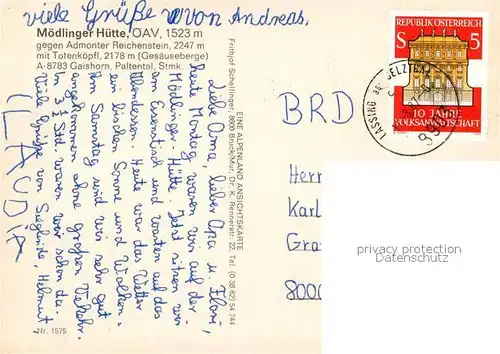 viele Grüße von Andreas.
Mödlinger Hütte, OAV, 1523 m
gegen Admonter Reichenstein, 2247 m
mit Totenköpfl, 2178 m (Gesäuseberge)
A-8783 Gaishorn, Paltental, Stmk.
Liebe Oma, lieber Opa u. Floni,
heute Montag waren wir auf der
Mödlinger-Hütte. Jetzt sitzen wir
am Essenstisch und warten auf das
Abendessen. Heute war das Wetter
ein bischen Sonne und Wolken.
Am Samstag sind wir sehr gut
angekommen ohne großen Verkehr.
In 3½ Std. waren wir schon da.
Viele Grüße von Sieglinde, Helmut
CLAUDIA
Nr. 1575
EINE ALPENLAND ANSICHTSKARTE
Frithjof Schellinger, 8600 Bruck/Mur, Dr. K. Rennerstr. 22, Tel. (0 38 62) 54 7 44
REPUBLIK ÖSTERREICH
S 5
10 JAHRE
VOLKSANWALTSCHAFT
LASSING BEI SELZTAL
9903
BRD
Herr
Karl
Gra
8000
privacy protection
Datenschutz